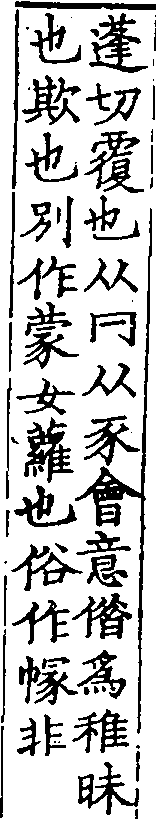 蓬切覆也从冃从豕會意偺爲稚昧
也欺也別作蒙女蘿也俗作幏非